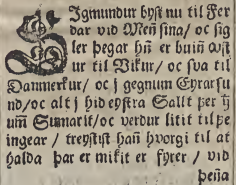 SIgmundur byst nu til Fer
dar vid Men sina/ oc sig
ler þegar hn̄ er buin̄ ust
ur til Vikur/ oc sva til
Danmerkur/ oc j gegnum Eyrarsu
nd/oc alt j hid eystra Sallt þar ȳ
um̄ Sumarit/ oc verdur litit til þe
ingear/ treystist han̄ hvorgi til at
halda þar er mikit er fyrer/ vid
þeṅa